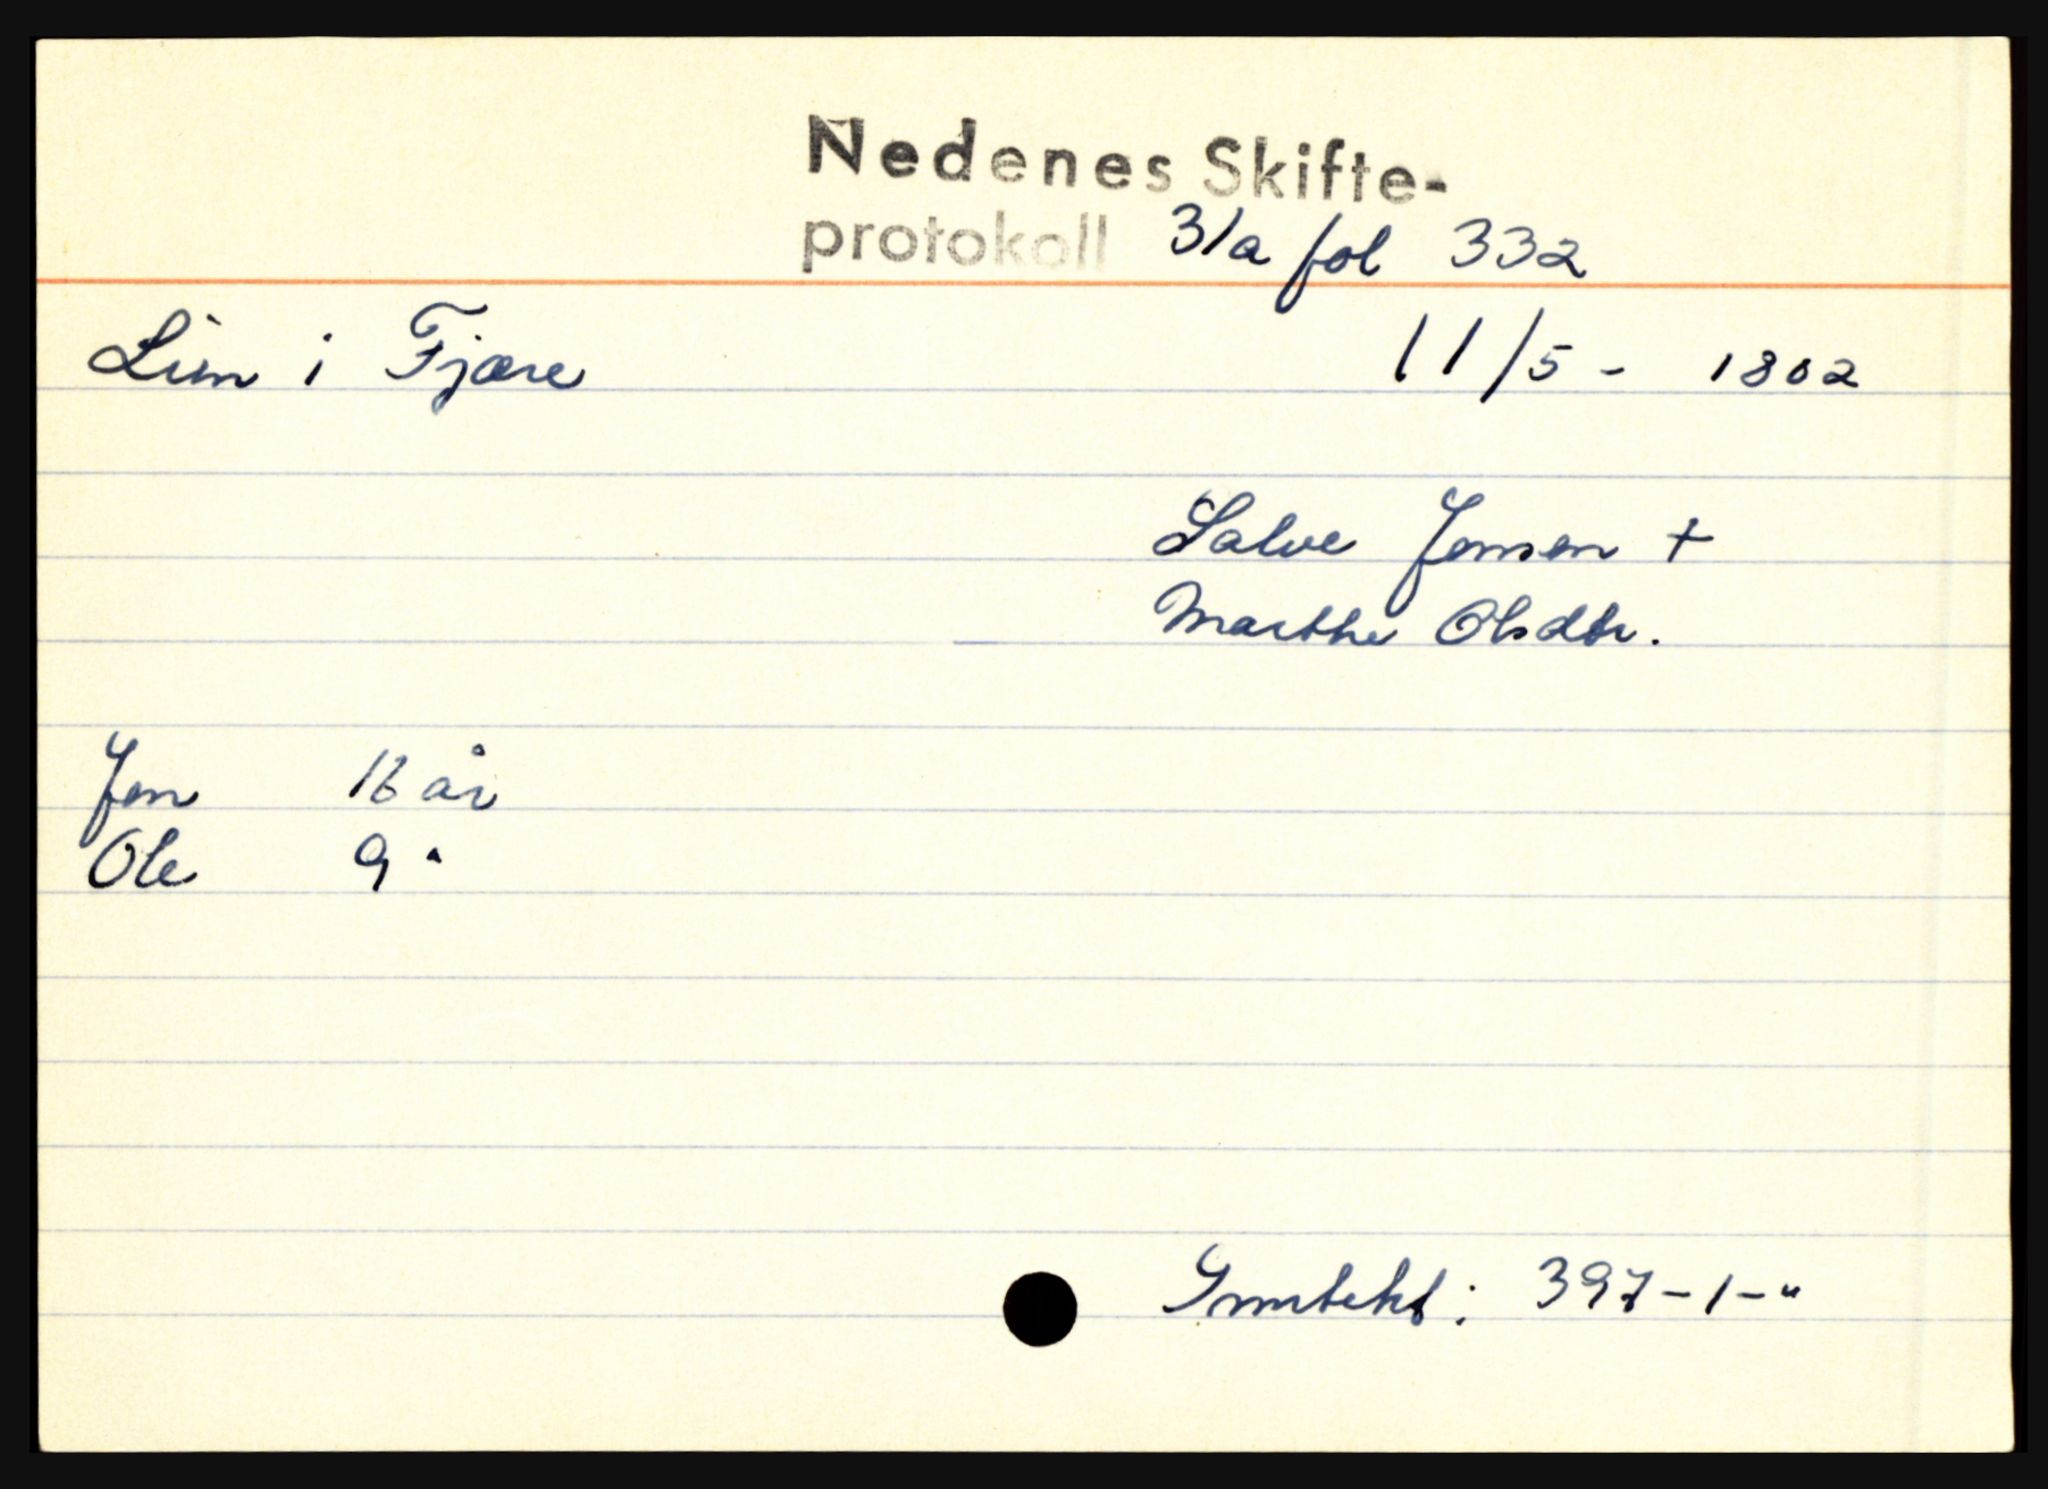 Nedenes Skifte-
protokoll 31a fol 332
Lien i Fjære 11/5 - 1802
Salve Jensen +
Marthe Olsdtr.
Jen 16 år
Ole 9 "
: 397-1-"